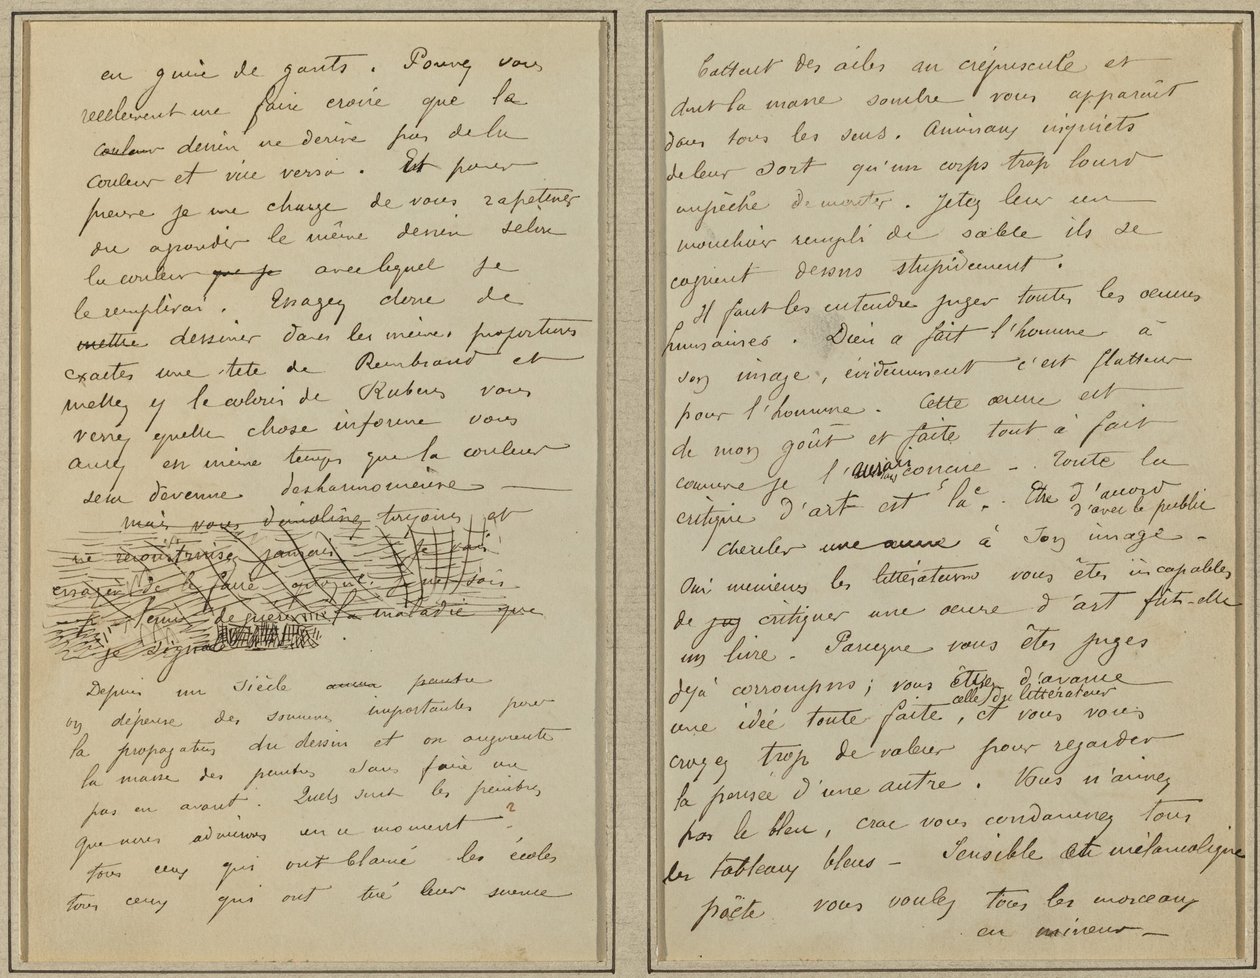 en guise de gants. Pouvez vous
reellement me faire croire que la
couleur dessin ne derive pas de la
couleur et vice versa. Et pour
preuve je me charge de vous rapetisser
ou agrandir le même dessin selon
la couleur que je avec lequel je
le remplirai. Essayez donc de
mettre dessiner dans les mêmes proportions
exactes une tete de Rembrand et
mettez y le coloris de Rubens vous
verrez quelle chose informe vous
aurez en même temps que la couleur
sera devenue desharmonieuse —
mais vous démolissez toujours et
ne reconstruisez jamais Je vais
essayer de le faire quoique je ne sois
de guerir la maladie que
je signale
Depuis un siècle peintre
on dépense des sommes importantes pour
la propagation du dessin et on augmente
la masse des peintres sans faire un
pas en avant. Quels sont les peintres
que nous admirons en ce moment ?
tous ceux qui ont blamé les écoles
tous ceux qui ont tiré leur science
battent des ailes au crépuscule et
dont la masse sombre vous apparait
dans tous les sens. Animaux inquiets
de leur sort qu'un corps trop lourd
empêche de monter. Jetez leur un
mouchoir rempli de sable ils se
cognent dessus stupidement.
Il faut les entendre juger toutes les œuvres
humaines. Dieu a fait l'homme à
son image, évidemment c'est flatteur
pour l'homme. Cette œuvre est
de mon goût et faite tout à fait
comme je l'aurais concue — Toute la
critique d'art est là. Etre d'accord
d'avec le public
chercher une œuvre à son image —
Oui messieurs les littérateurs vous êtes incapables
de jug critiquer une œuvre d'art fût-elle
un livre. Parceque vous êtes juges
déjà corrompus; vous avez d'avance
celle du littérateur
une idée toute faite, et vous vous
croyez trop de valeur pour regarder
la pensée d'une autre. Vous n'aimez
pas le bleu, crac vous condamnez tous
les tableaux bleus — Sensible et mélancolique
poëte vous voulez tous les morceaux
en mineur —